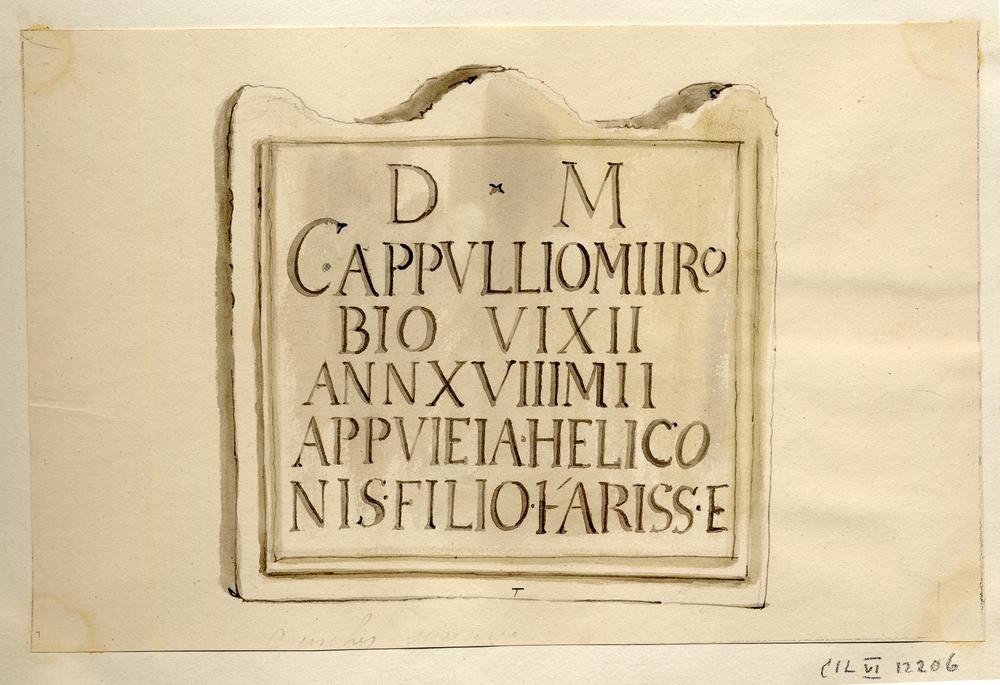 D · M
C·APPVLLIOMIIRO
BIO VIXII
ANNXVIIIIMII
APPVIEIA·HELICO
NIS·FILIO·KARISS·E
T
CIL VI 12206